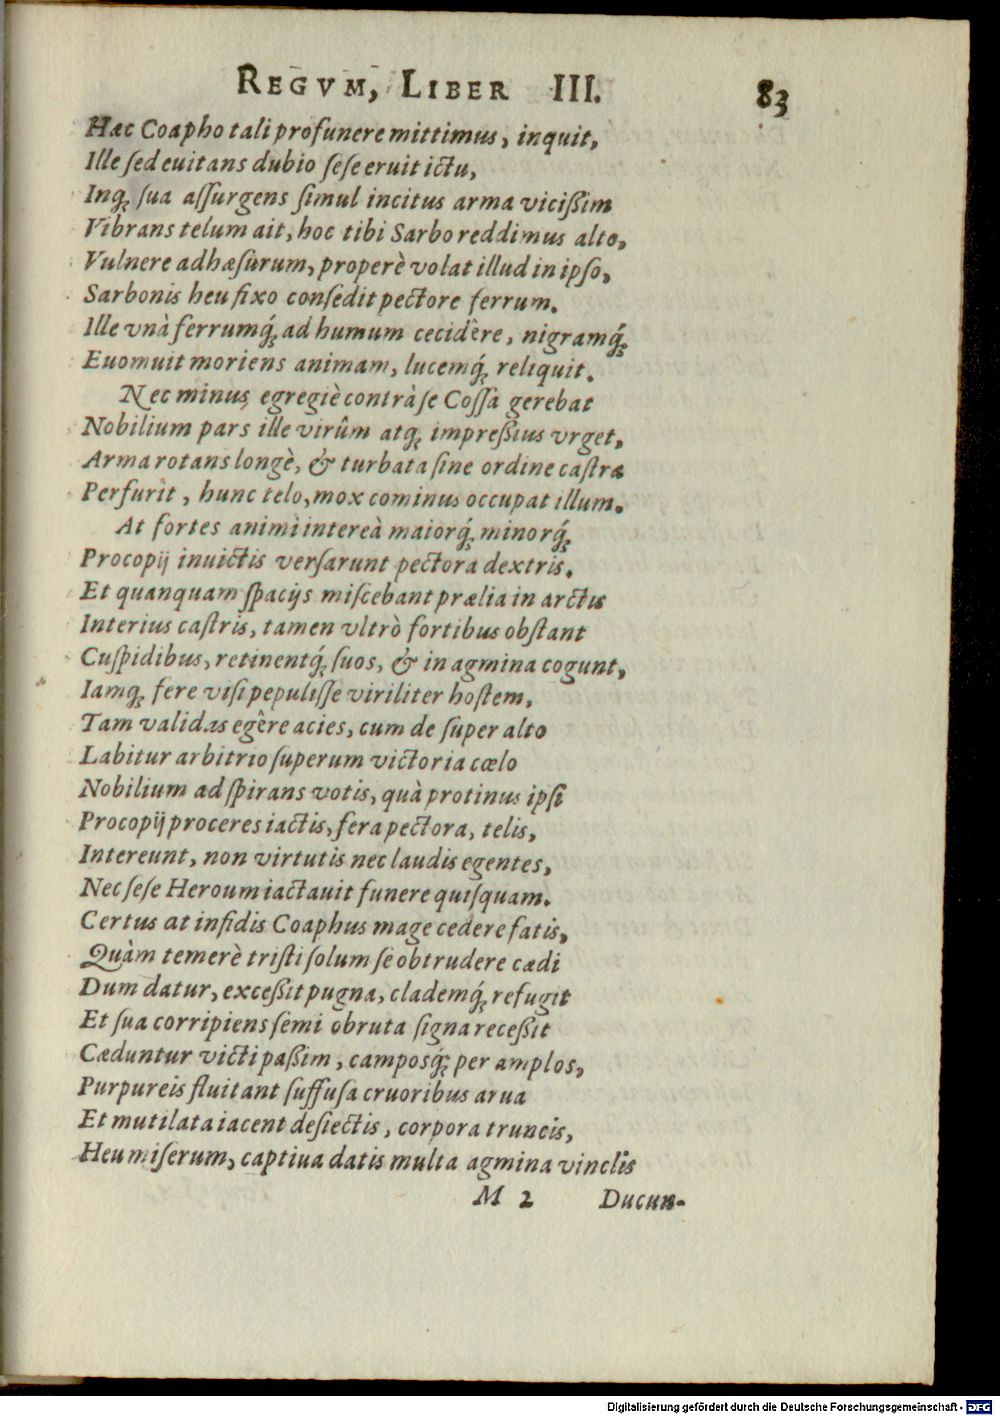 REGVM, LIBER III. 83
Hæc Coapho tali pro funere mittimus, inquit,
Ille sed euitans dubio sese eruit ictu,
Inq́ sua assurgens simul incitus arma vicißim
Vibrans telum ait, hoc tibi Sarbo reddimus alto,
Vulnere adhæsurum, properè volat illud in ipso,
Sarbonis heu fixo consedit pectore ferrum.
Ille vnà ferrumq́ ad humum cecidêre, nigramq́
Euomuit moriens animam, lucemq́ reliquit.
Nec minus egregiè contrà se Cossa gerebat
Nobilium pars ille virûm atq́ impreßius vrget,
Arma rotans longè, & turbata sine ordine castra
Perfurit, hunc telo, mox cominus occupat illum.
At fortes animi intereà maiorq́ minorq́
Procopij inuictis versarunt pectora dextris.
Et quanquam spacijs miscebant prælia in arctis
Interius castris, tamen vltrò fortibus obstant
Cuspidibus, retinentq́ suos, & in agmina cogunt,
Iamq́ fere visi pepulisse viriliter hostem,
Tam validas egêre acies, cum de super alto
Labitur arbitrio superum victoria cœlo
Nobilium adspirans votis, quà protinus ipsi
Procopij proceres iactis, fera pectora, telis,
Intereunt, non virtutis nec laudis egentes,
Nec sese Heroum iactauit funere quisquam.
Certus at infidis Coaphus mage cedere fatis,
Quàm temerè tristi solum se obtrudere cædi
Dum datur, exceßit pugna, clademq́ refugit
Et sua corripiens semi obruta signa receßit
Cæduntur victi paßim, camposq́ per amplos,
Purpureis fluitant suffusa cruoribus arua
Et mutilata iacent desiectis, corpora truncis,
Heu miserum, captiua datis multa agmina vinclis
M 2 Ducun-
Digitalisierung gefördert durch die Deutsche Forschungsgemeinschaft - DFG